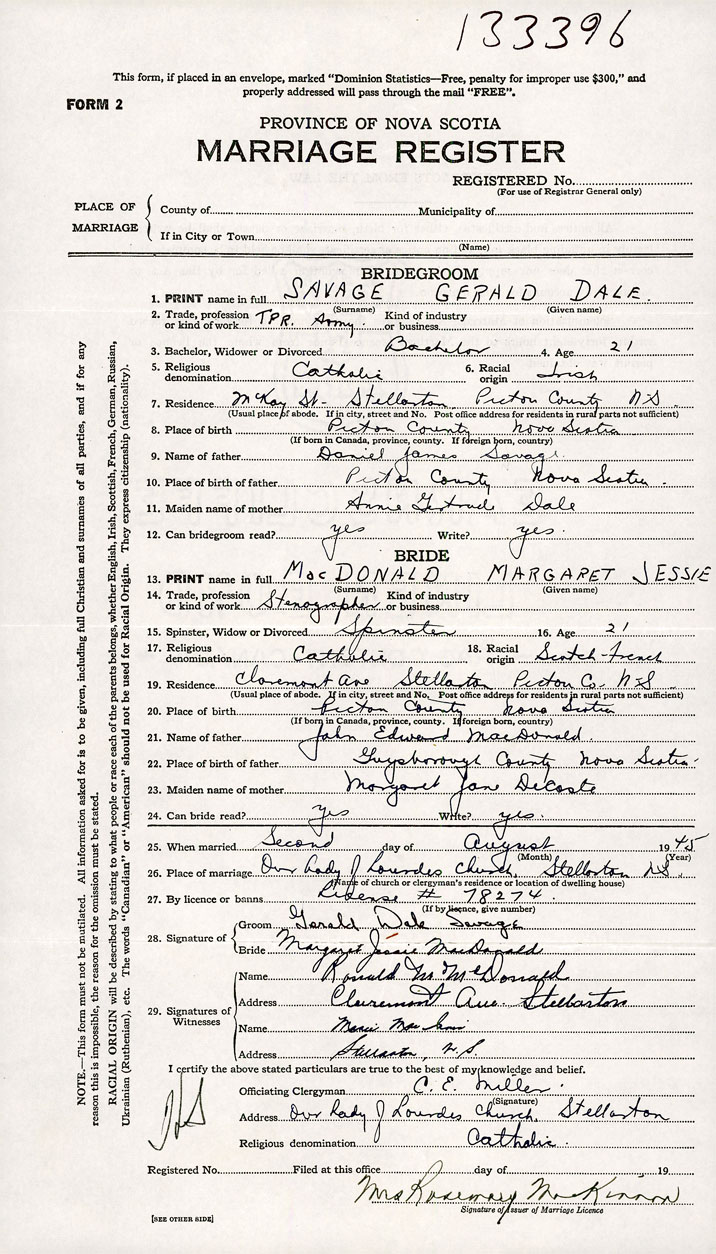 133396
This form, if placed in an envelope, marked "Dominion Statistics—Free, penalty for improper use $300," and
properly addressed will pass through the mail "FREE".
FORM 2
PROVINCE OF NOVA SCOTIA
MARRIAGE REGISTER
REGISTERED No.
(For use of Registrar General only)
PLACE OF MARRIAGE
County of Municipality of
If in City or Town
(Name)
BRIDEGROOM
1. PRINT name in full SAVAGE GERALD DALE.
(Surname) (Given name)
2. Trade, profession or kind of work TPR. Army. Kind of industry or business
3. Bachelor, Widower or Divorced Bachelor 4. Age 21
5. Religious denomination Catholic 6. Racial origin Irish
7. Residence McKay St- Stellarton Pictou County NS.
(Usual place of abode. If in city, street and No. Post office address for residents in rural parts not sufficient)
8. Place of birth Pictou County Nova Scotia
(If born in Canada, province, county. If foreign born, country)
9. Name of father Daniel James Savage.
10. Place of birth of father Pictou County Nova Scotia.
11. Maiden name of mother Annie Gertrude Dale
12. Can bridegroom read? yes Write? yes.
BRIDE
13. PRINT name in full MacDONALD MARGARET JESSIE
(Surname) (Given name)
14. Trade, profession or kind of work Stenographer Kind of industry or business
15. Spinster, Widow or Divorced Spinster 16. Age 21
17. Religious denomination Catholic 18. Racial origin Scotch-French
19. Residence Claremont Ave Stellarton Pictou Co. N.S.
(Usual place of abode. If in city, street and No. Post office address for residents in rural parts not sufficient)
20. Place of birth Pictou County Nova Scotia
(If born in Canada, province, county. If foreign born, country)
21. Name of father John Edward MacDonald.
22. Place of birth of father Guysborough County Nova Scotia.
23. Maiden name of mother Margaret Jane DeCoste
24. Can bride read? yes Write? yes.
25. When married Second day of August 1945
(Month) (Year)
26. Place of marriage Our Lady of Lourdes Church, Stellarton NS.
(Name of church or clergyman's residence or location of dwelling house)
27. By licence or banns License # 78274.
(If by licence, give number)
28. Signature of
Groom Gerald Dale Savage
Bride Margaret Jessie MacDonald
29. Signatures of Witnesses
Name Ronald M. McDonald
Address Claremont Ave. Stellarton
Name
Address Stellarton, N.S.
I certify the above stated particulars are true to the best of my knowledge and belief.
Officiating Clergyman C. E. Miller.
(Signature)
Address Our Lady of Lourdes Church, Stellarton
Religious denomination Catholic.
Registered No. Filed at this office day of 19
Mrs Rosemary MacKinnon
Signature of Issuer of Marriage Licence
[SEE OTHER SIDE]
NOTE.—This form must not be mutilated. All information asked for is to be given, including full Christian and surnames of all parties, and if for any
reason this is impossible, the reason for the omission must be stated.
RACIAL ORIGIN will be described by stating to what people or race each of the parents belongs, whether English, Irish, Scottish, French, German, Russian,
Ukrainian (Ruthenian), etc. The words "Canadian" or "American" should not be used for Racial Origin. They express citizenship (nationality).